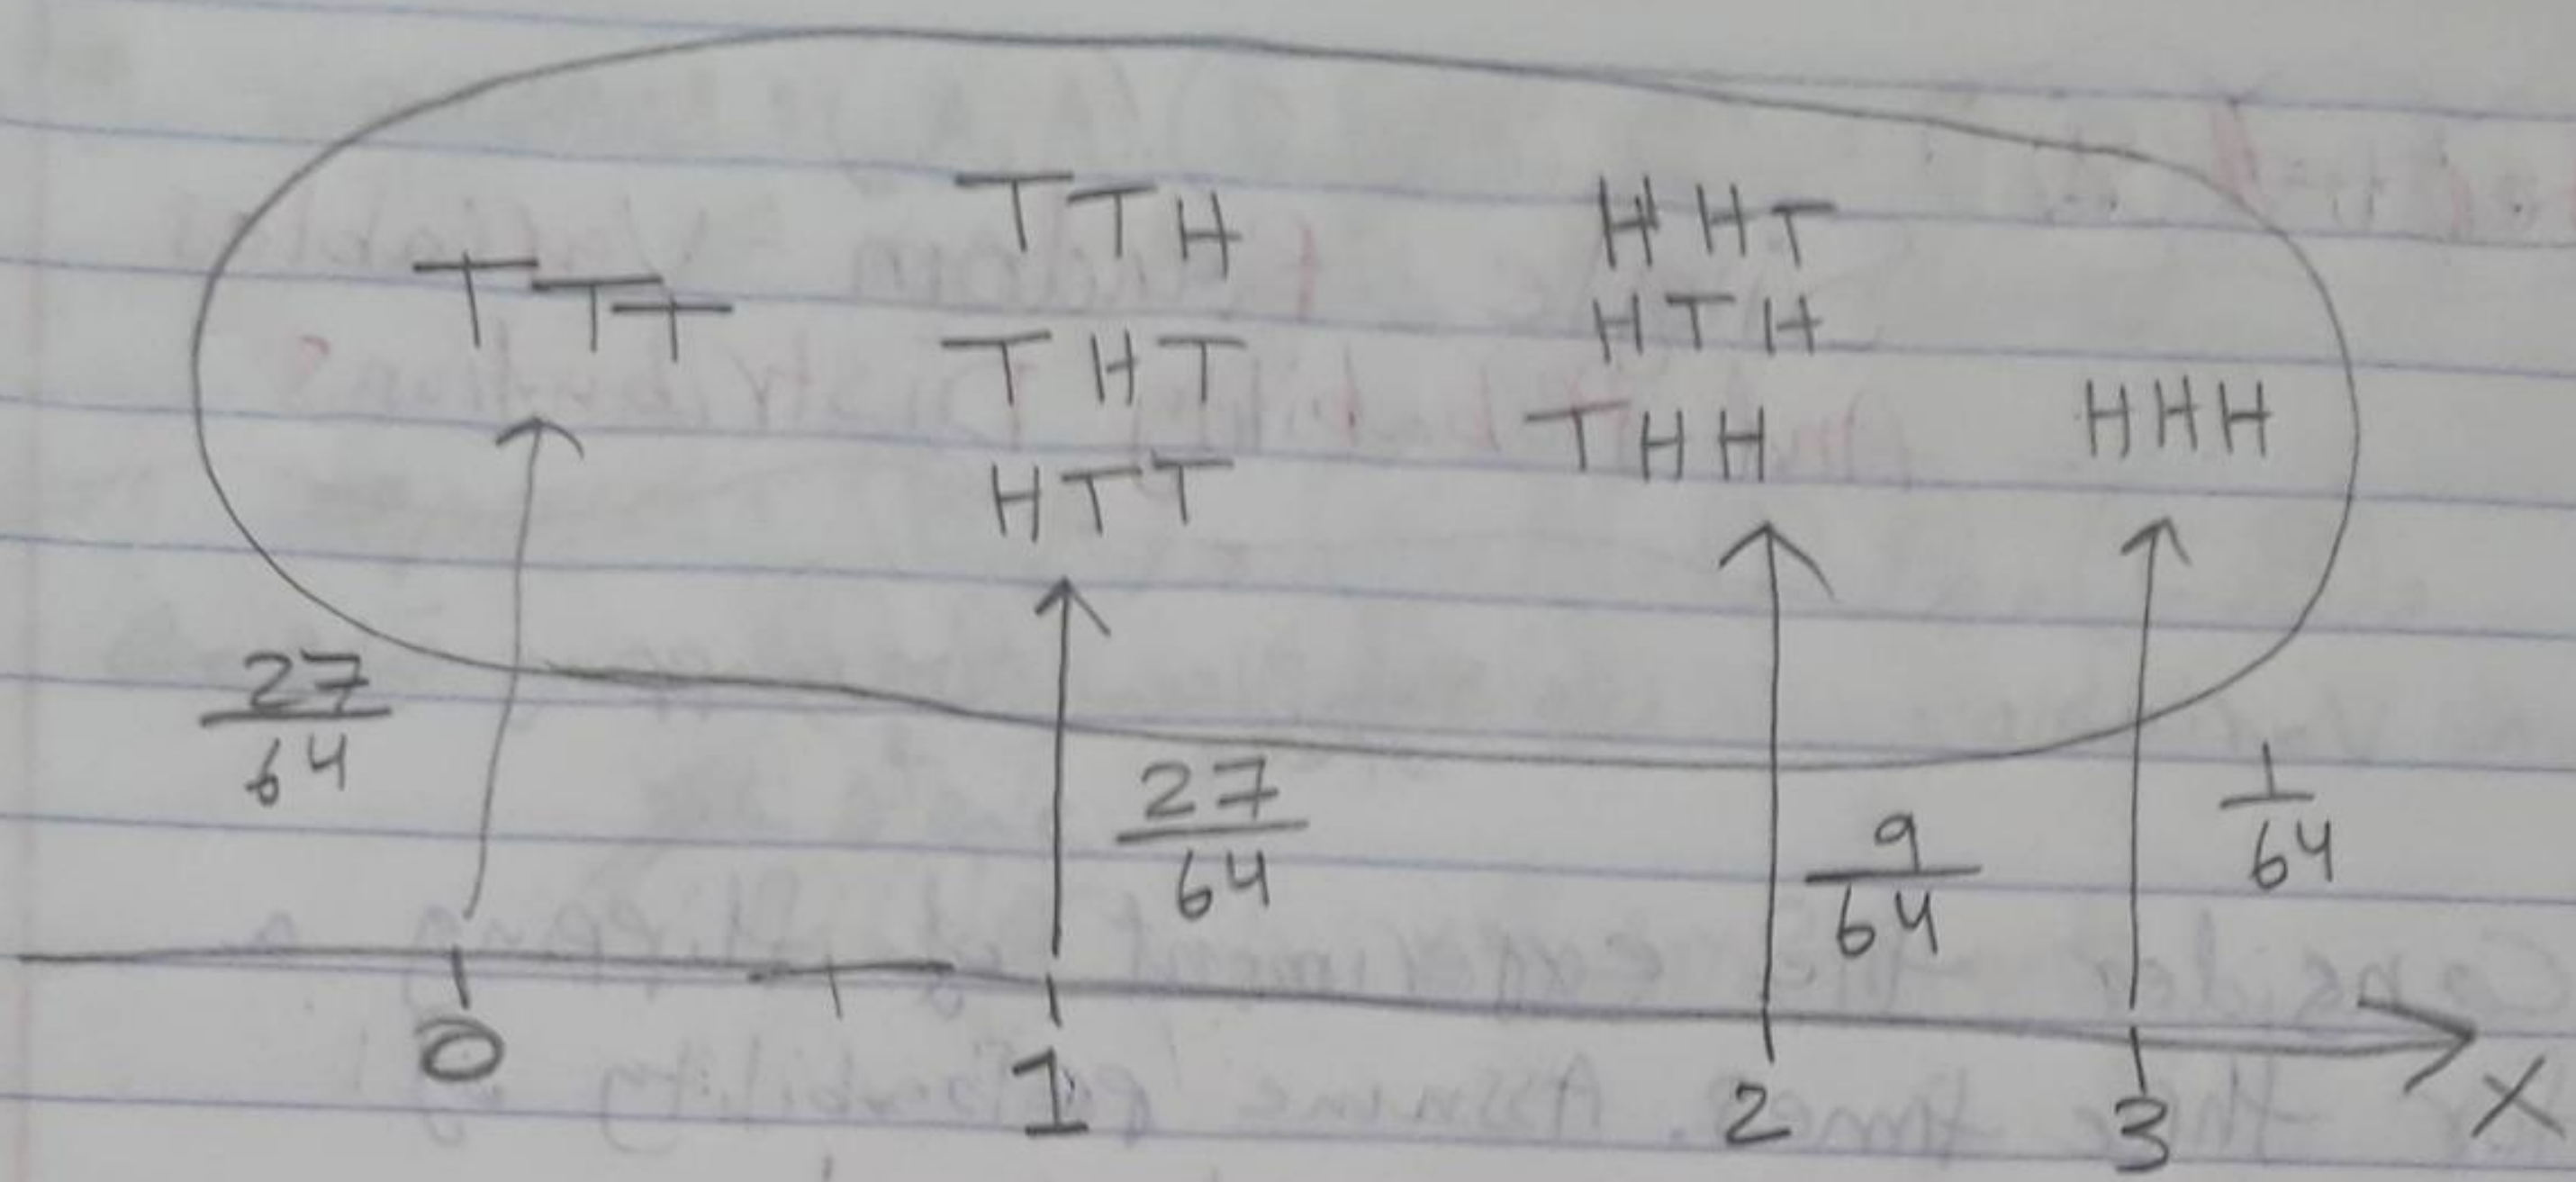 TTT
TTH
THT
HTT
HHT
HTH
THH
HHH
27/64
27/64
9/64
1/64
0 1 2 3 X